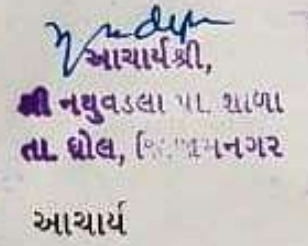 આચાર્યશ્રી,
શ્રી નથુવડલા પ્રા. શાળા
તા. ધ્રોલ, જિ.જામનગર
આચાર્ય